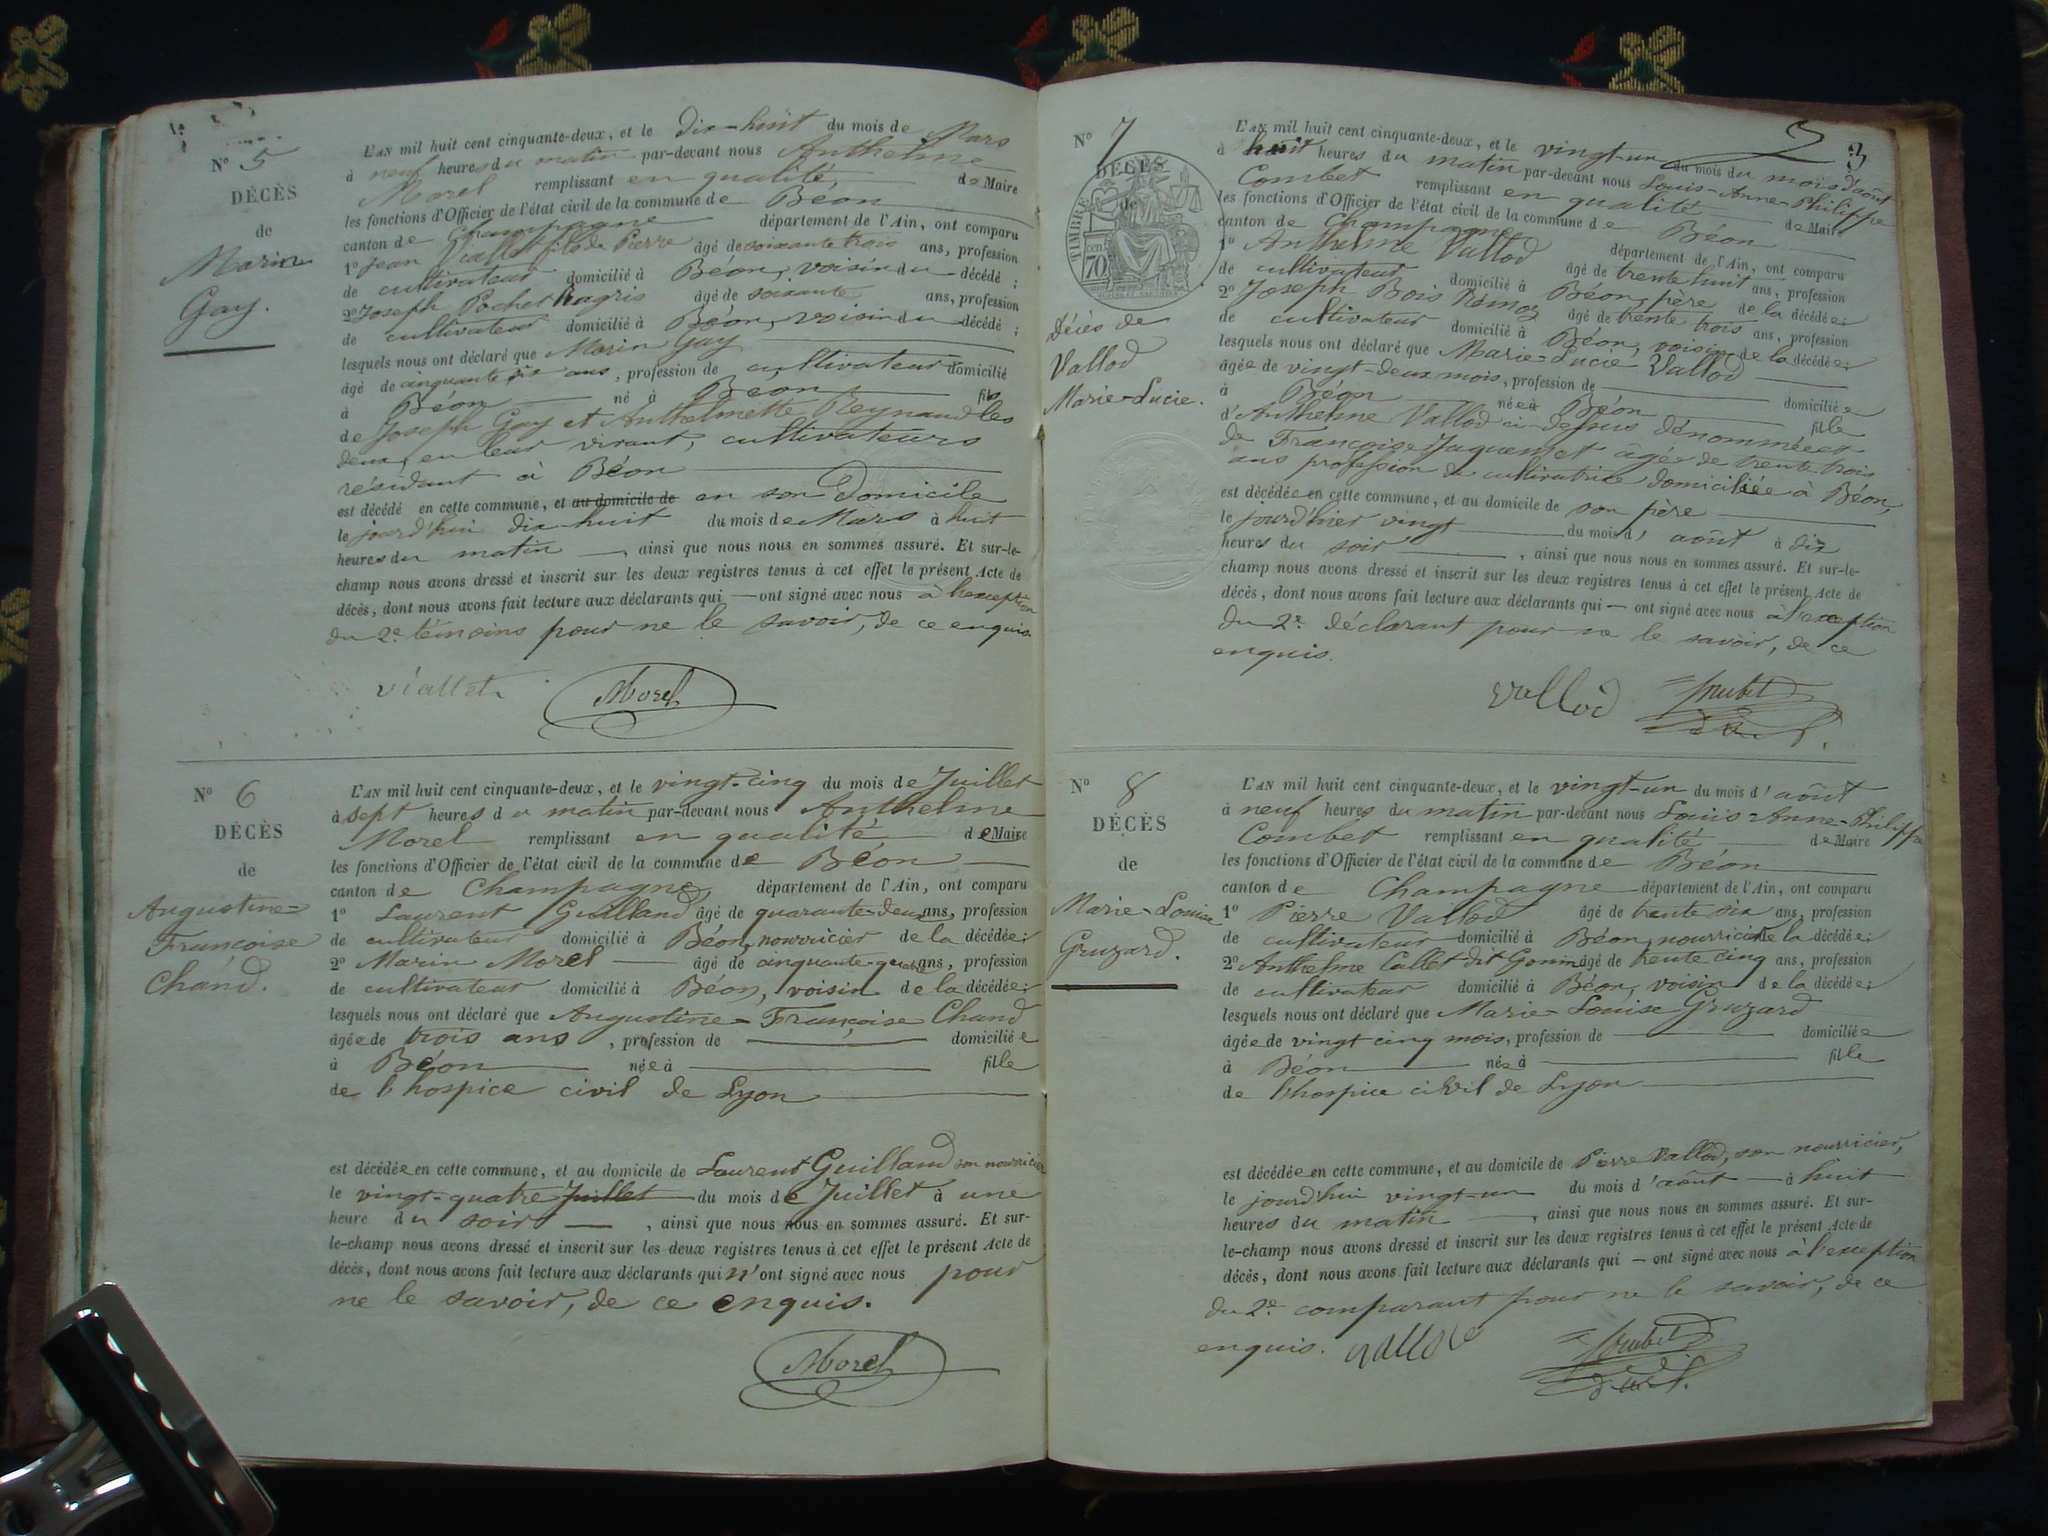 N° 5
DÉCÈS
de
Marin
Gay.
L'AN mil huit cent cinquante-deux, et le dix-huit du mois de Mars
à neuf heures du matin par-devant nous Anthelme
Morel remplissant en qualité de Maire
les fonctions d'Officier de l'état civil de la commune de Béon
canton de Champagne département de l'Ain, ont comparu
1° Jean Viallet fils de Pierre âgé de soixante trois ans, profession
de cultivateur domicilié à Béon, voisin du décédé ;
2° Joseph Pochet âgé de soixante ans, profession
de cultivateur domicilié à Béon, voisin du décédé ;
lesquels nous ont déclaré que Marin Gay
âgé de cinquante six ans, profession de cultivateur domicilié
à Béon né à Béon fils
de Joseph Gay et Anthelmette Reynaud les
deux, en leur vivant, cultivateurs
résidant à Béon
est décédé en cette commune, et au domicile de en son domicile
le jourd'hui dix huit du mois de Mars à huit
heures du matin , ainsi que nous nous en sommes assuré. Et sur-le-
champ nous avons dressé et inscrit sur les deux registres tenus à cet effet le présent Acte de
décès, dont nous avons fait lecture aux déclarants qui — ont signé avec nous à l'exception
du 2e témoins pour ne le savoir, de ce enquis.
Viallet
Morel
N° 6
DÉCÈS
de
Augustine=
Françoise
Chand.
L'AN mil huit cent cinquante-deux, et le vingt-cinq du mois de Juillet
à sept heures du matin par-devant nous Anthelme
Morel remplissant en qualité de Maire
les fonctions d'Officier de l'état civil de la commune de Béon
canton de Champagne, département de l'Ain, ont comparu
1° Laurent Guilland âgé de quarante-deux ans, profession
de cultivateur domicilié à Béon, nourricier de la décédée ;
2° Marin Morel âgé de cinquante-quatre ans, profession
de cultivateur domicilié à Béon, voisin de la décédée ;
lesquels nous ont déclaré que Augustine=Françoise Chand
âgée de trois ans , profession de domiciliée
à Béon née à fille
de l'hospice civil de Lyon
est décédée en cette commune, et au domicile de Laurent Guilland son nourricier
le vingt-quatre Juillet du mois de Juillet à une
heure du soir , ainsi que nous nous en sommes assuré. Et sur-
le-champ nous avons dressé et inscrit sur les deux registres tenus à cet effet le présent Acte de
décès, dont nous avons fait lecture aux déclarants qui n'ont signé avec nous pour
ne le savoir, de ce enquis.
Morel
3
N° 7
DÉCÈS
de
TIMBRE
70
Décès de
Vallod
Marie=Lucie.
L'AN mil huit cent cinquante-deux, et le vingt-un du mois du mois d'août
à huit heures du matin par-devant nous Louis-Anne-Philippe
Combet remplissant en qualité de Maire
les fonctions d'Officier de l'état civil de la commune de Béon
canton de Champagne département de l'Ain, ont comparu
1° Anthelme Vallod âgé de trente huit ans, profession
de cultivateur domicilié à Béon, père de la décédée ;
2° Joseph Bois âgé de trente trois ans, profession
de cultivateur domicilié à Béon, voisin de la décédée ;
lesquels nous ont déclaré que Marie=Lucie Vallod
âgée de vingt-deux mois, profession de domiciliée
à Béon née à Béon fille
d'Anthelme Vallod ci-dessus dénommé et
de Françoise Jaquemet âgée de trente trois
ans profession de cultivatrice domiciliée à Béon,
est décédée en cette commune, et au domicile de son père
le jourd'hier vingt du mois d'août à dix
heures du soir , ainsi que nous nous en sommes assuré. Et sur-le-
champ nous avons dressé et inscrit sur les deux registres tenus à cet effet le présent Acte de
décès, dont nous avons fait lecture aux déclarants qui — ont signé avec nous à l'exception
du 2e déclarant pour ne le savoir, de ce
enquis.
Vallod
N° 8
DÉCÈS
de
Marie-Louise
Gruzard.
L'AN mil huit cent cinquante-deux, et le vingt-un du mois d'août
à neuf heures du matin par-devant nous Louis Anne-Philippe
Combet remplissant en qualité de Maire
les fonctions d'Officier de l'état civil de la commune de Béon
canton de Champagne département de l'Ain, ont comparu
1° Pierre Vallod âgé de trente six ans, profession
de cultivateur domicilié à Béon, nourricier de la décédée ;
2° Anthelme Callet dit Gonin âgé de trente cinq ans, profession
de cultivateur domicilié à Béon, voisin de la décédée ;
lesquels nous ont déclaré que Marie-Louise Gruzard
âgée de vingt cinq mois, profession de domiciliée
à Béon née à fille
de l'hospice civil de Lyon
est décédée en cette commune, et au domicile de Pierre Vallod, son nourricier,
le jourd'hui vingt-un du mois d'août à huit
heures du matin , ainsi que nous nous en sommes assuré. Et sur-
le-champ nous avons dressé et inscrit sur les deux registres tenus à cet effet le présent Acte de
décès, dont nous avons fait lecture aux déclarants qui — ont signé avec nous à l'exception
du 2e comparant pour ne le savoir, de ce
enquis. Vallod